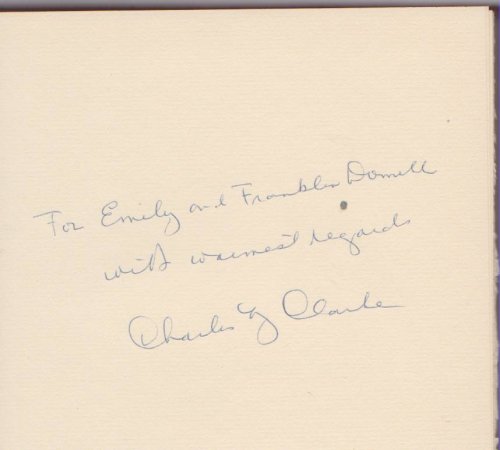 For Emily and Franklin
with warmest regards
Charles Clarke